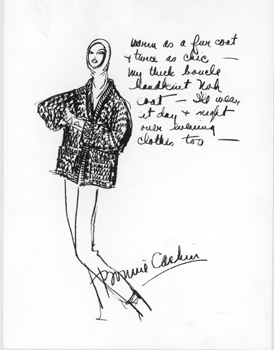 warm as a fur coat
& twice as chic —
my thick boucle
handknit
coat — I'd wear
it day & night
over evening
clothes too —
Bonnie Cashin